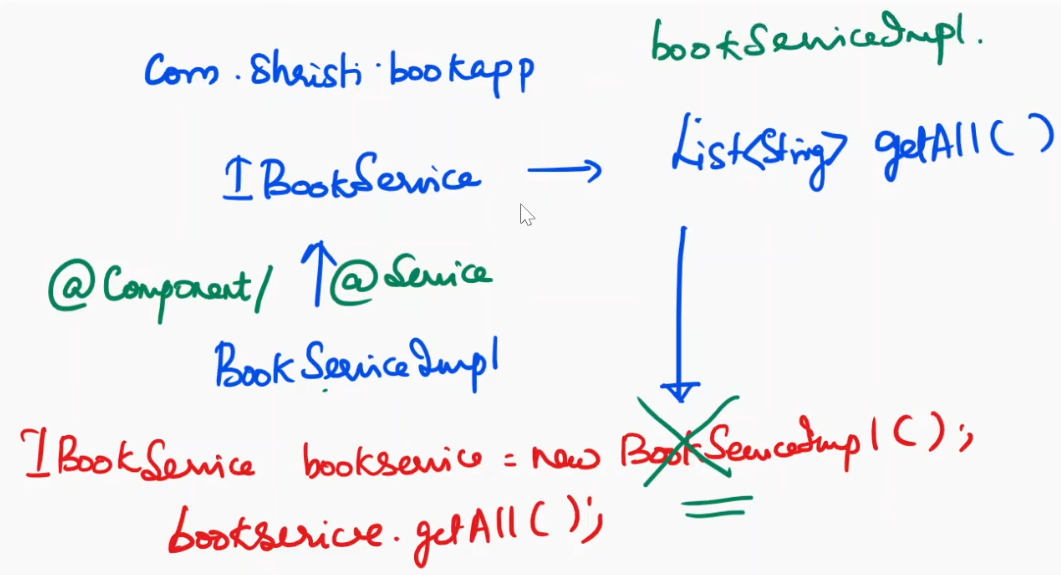 bookServiceImpl.
com.shristi.bookapp
IBookService → List<String> getAll()
@Component/ @Service
BookServiceImpl
IBookService bookservice = new BookServiceImpl();
bookservice.getAll();